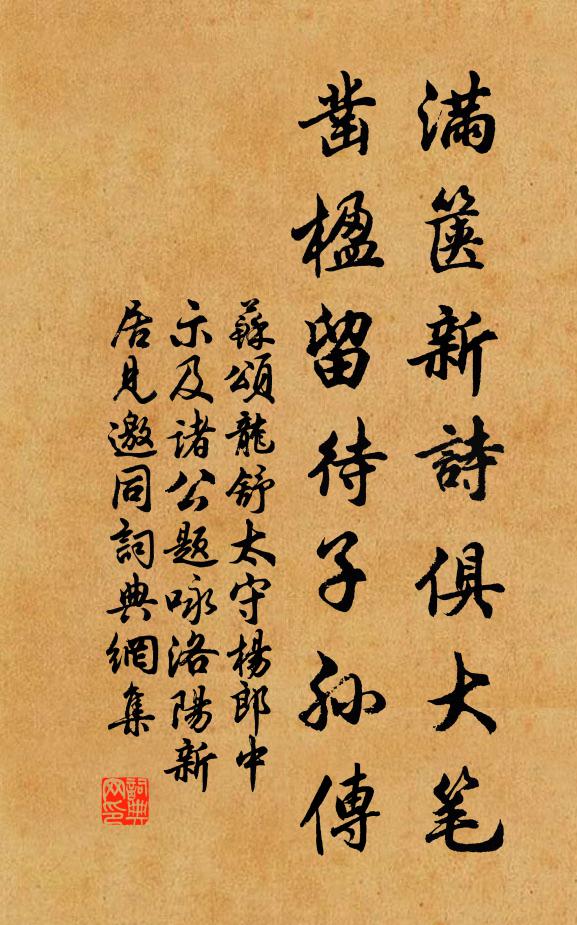 满箧新詩俱大笔
凿楹留待子孙傳
蘇頌龍舒太守楊郎中
示及諸公題咏洛陽新
居見邀同詞典網集
詞典
网印